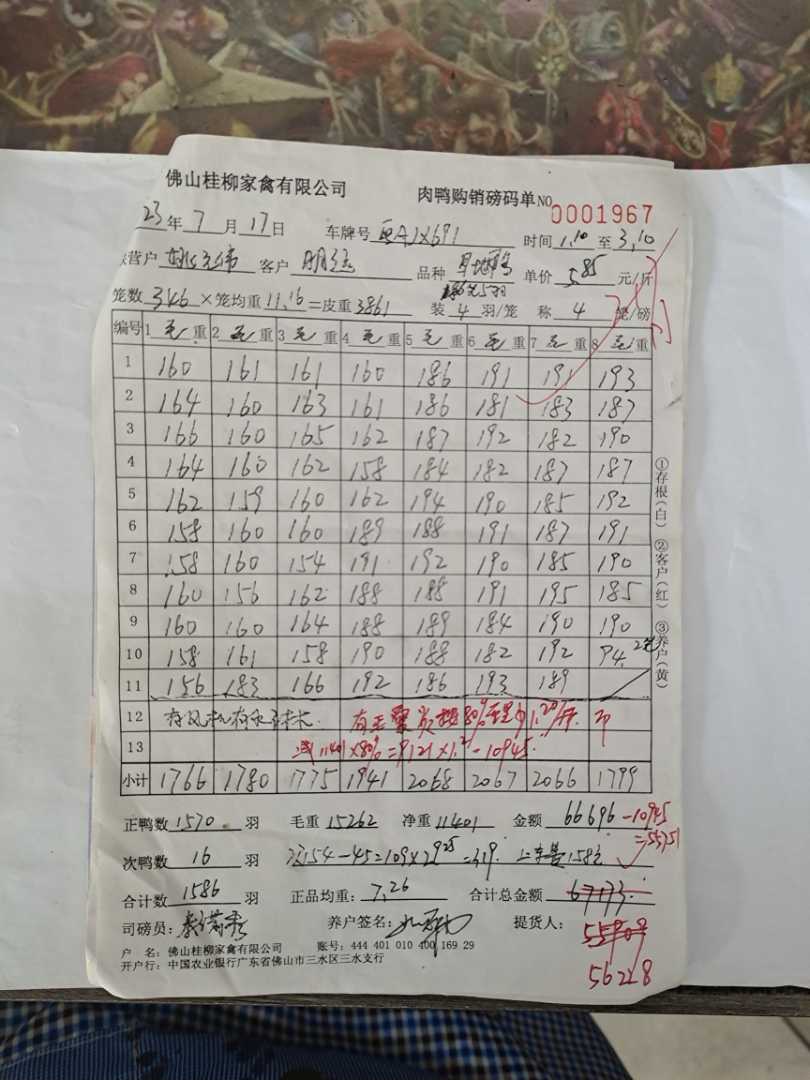 佛山桂柳家禽有限公司 肉鸭购销磅码单 NO 0001967
23年 7 月 17日 车牌号 AJX691 时间 1.10 至 3.10
营户 客户 明 品种 单价 5.85 元/斤
笼数 346 ×笼均重 11.16 =皮重 3861 装 4 羽/笼 称 4 笼/磅
编号 1 毛 重 2 毛 重 3 毛 重 4 毛 重 5 毛 重 6 毛 重 7 毛 重 8 毛 重
1 160 161 161 160 186 191 191 193
2 164 160 163 161 186 181 183 187
3 166 160 165 162 187 192 182 190
4 164 160 162 158 184 182 187 187
5 162 159 160 162 194 190 185 192
6 158 160 160 189 188 191 187 191
7 158 160 154 191 192 190 185 190
8 160 156 162 188 188 191 195 185
9 160 160 164 188 189 184 190 190
10 158 161 158 190 188 182 192 94
11 156 183 166 192 186 193 189
12 80% 1.20/斤
13 11401×80%=9121×1.2 -10945
小计 1766 1780 1775 1941 2068 2067 2066 1799
正鸭数 1570 羽 毛重 15262 净重 11401 金额 66696 -10945
=55751
次鸭数 16 羽 次154-45=109×2.925=319. 上车 158元
合计数 1586 羽 正品均重: 7.26 合计总金额 67173
司磅员: 养户签名: 提货人:
56228
户 名: 佛山桂柳家禽有限公司 账号: 444 401 010 400 169 29
开户行: 中国农业银行广东省佛山市三水区三水支行
①存根(白) ②客户(红) ③养户(黄)